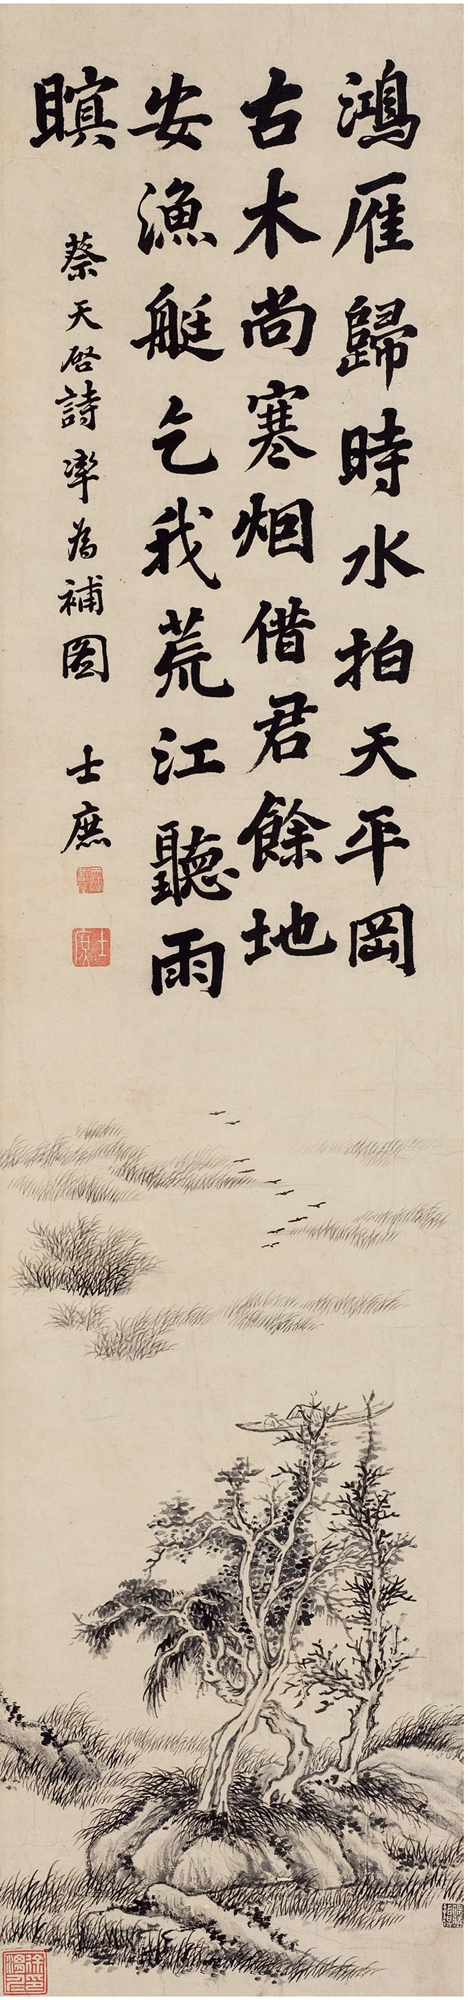 鴻雁歸時水拍天平岡
古木尚寒烟借君餘地
安漁艇乞我荒江聽雨
瞑
蔡天啓詩率為補圖
士庶
士庶